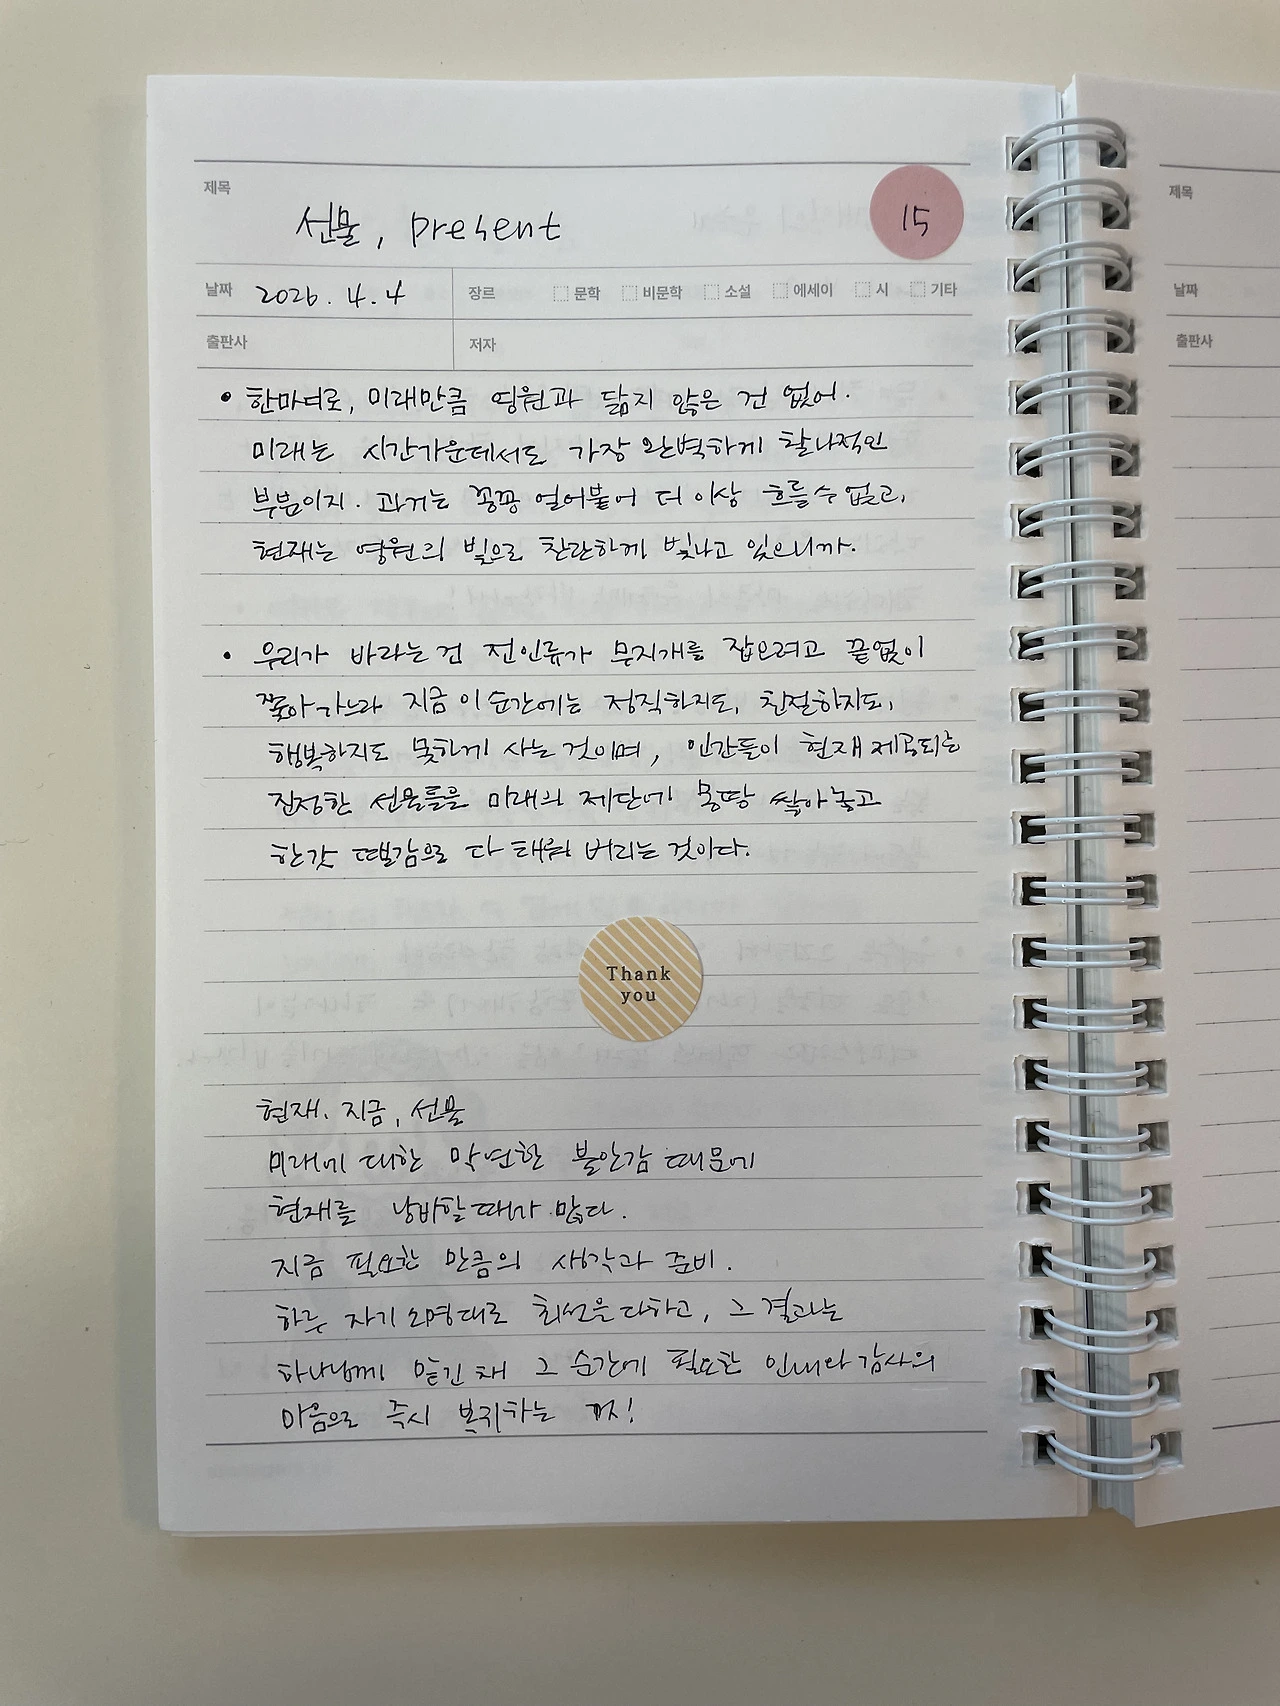 제목
선물, present
15
날짜 2026. 4. 4 장르 문학 비문학 소설 에세이 시 기타
출판사 저자
• 한마디로, 미래만큼 영원과 닮지 않은 건 없어.
미래는 시간가운데서도 가장 완벽하게 찰나적인
부분이지. 과거는 꽁꽁 얼어붙어 더 이상 흐를 수 없고,
현재는 영원의 빛으로 찬란하게 빛나고 있으니까.
• 우리가 바라는 건 전인류가 무지개를 잡으려고 끝없이
쫓아가느라 지금 이 순간에는 정직하지도, 친절하지도,
행복하지도 못하게 사는 것이며, 인간들이 현재 제공되는
진정한 선물들을 미래의 제단에 몽땅 쌓아 놓고
한갓 땔감으로 다 태워 버리는 것이다.
Thank
you
현재. 지금, 선물
미래에 대한 막연한 불안감 때문에
현재를 낭비할 때가 많다.
지금 필요한 만큼의 생각과 준비.
하루 자기 소명대로 최선을 다하고, 그 결과는
하나님께 맡긴 채 그 순간에 필요한 인내와 감사의
마음으로 즉시 복귀하는 것!
제목
날짜
출판사